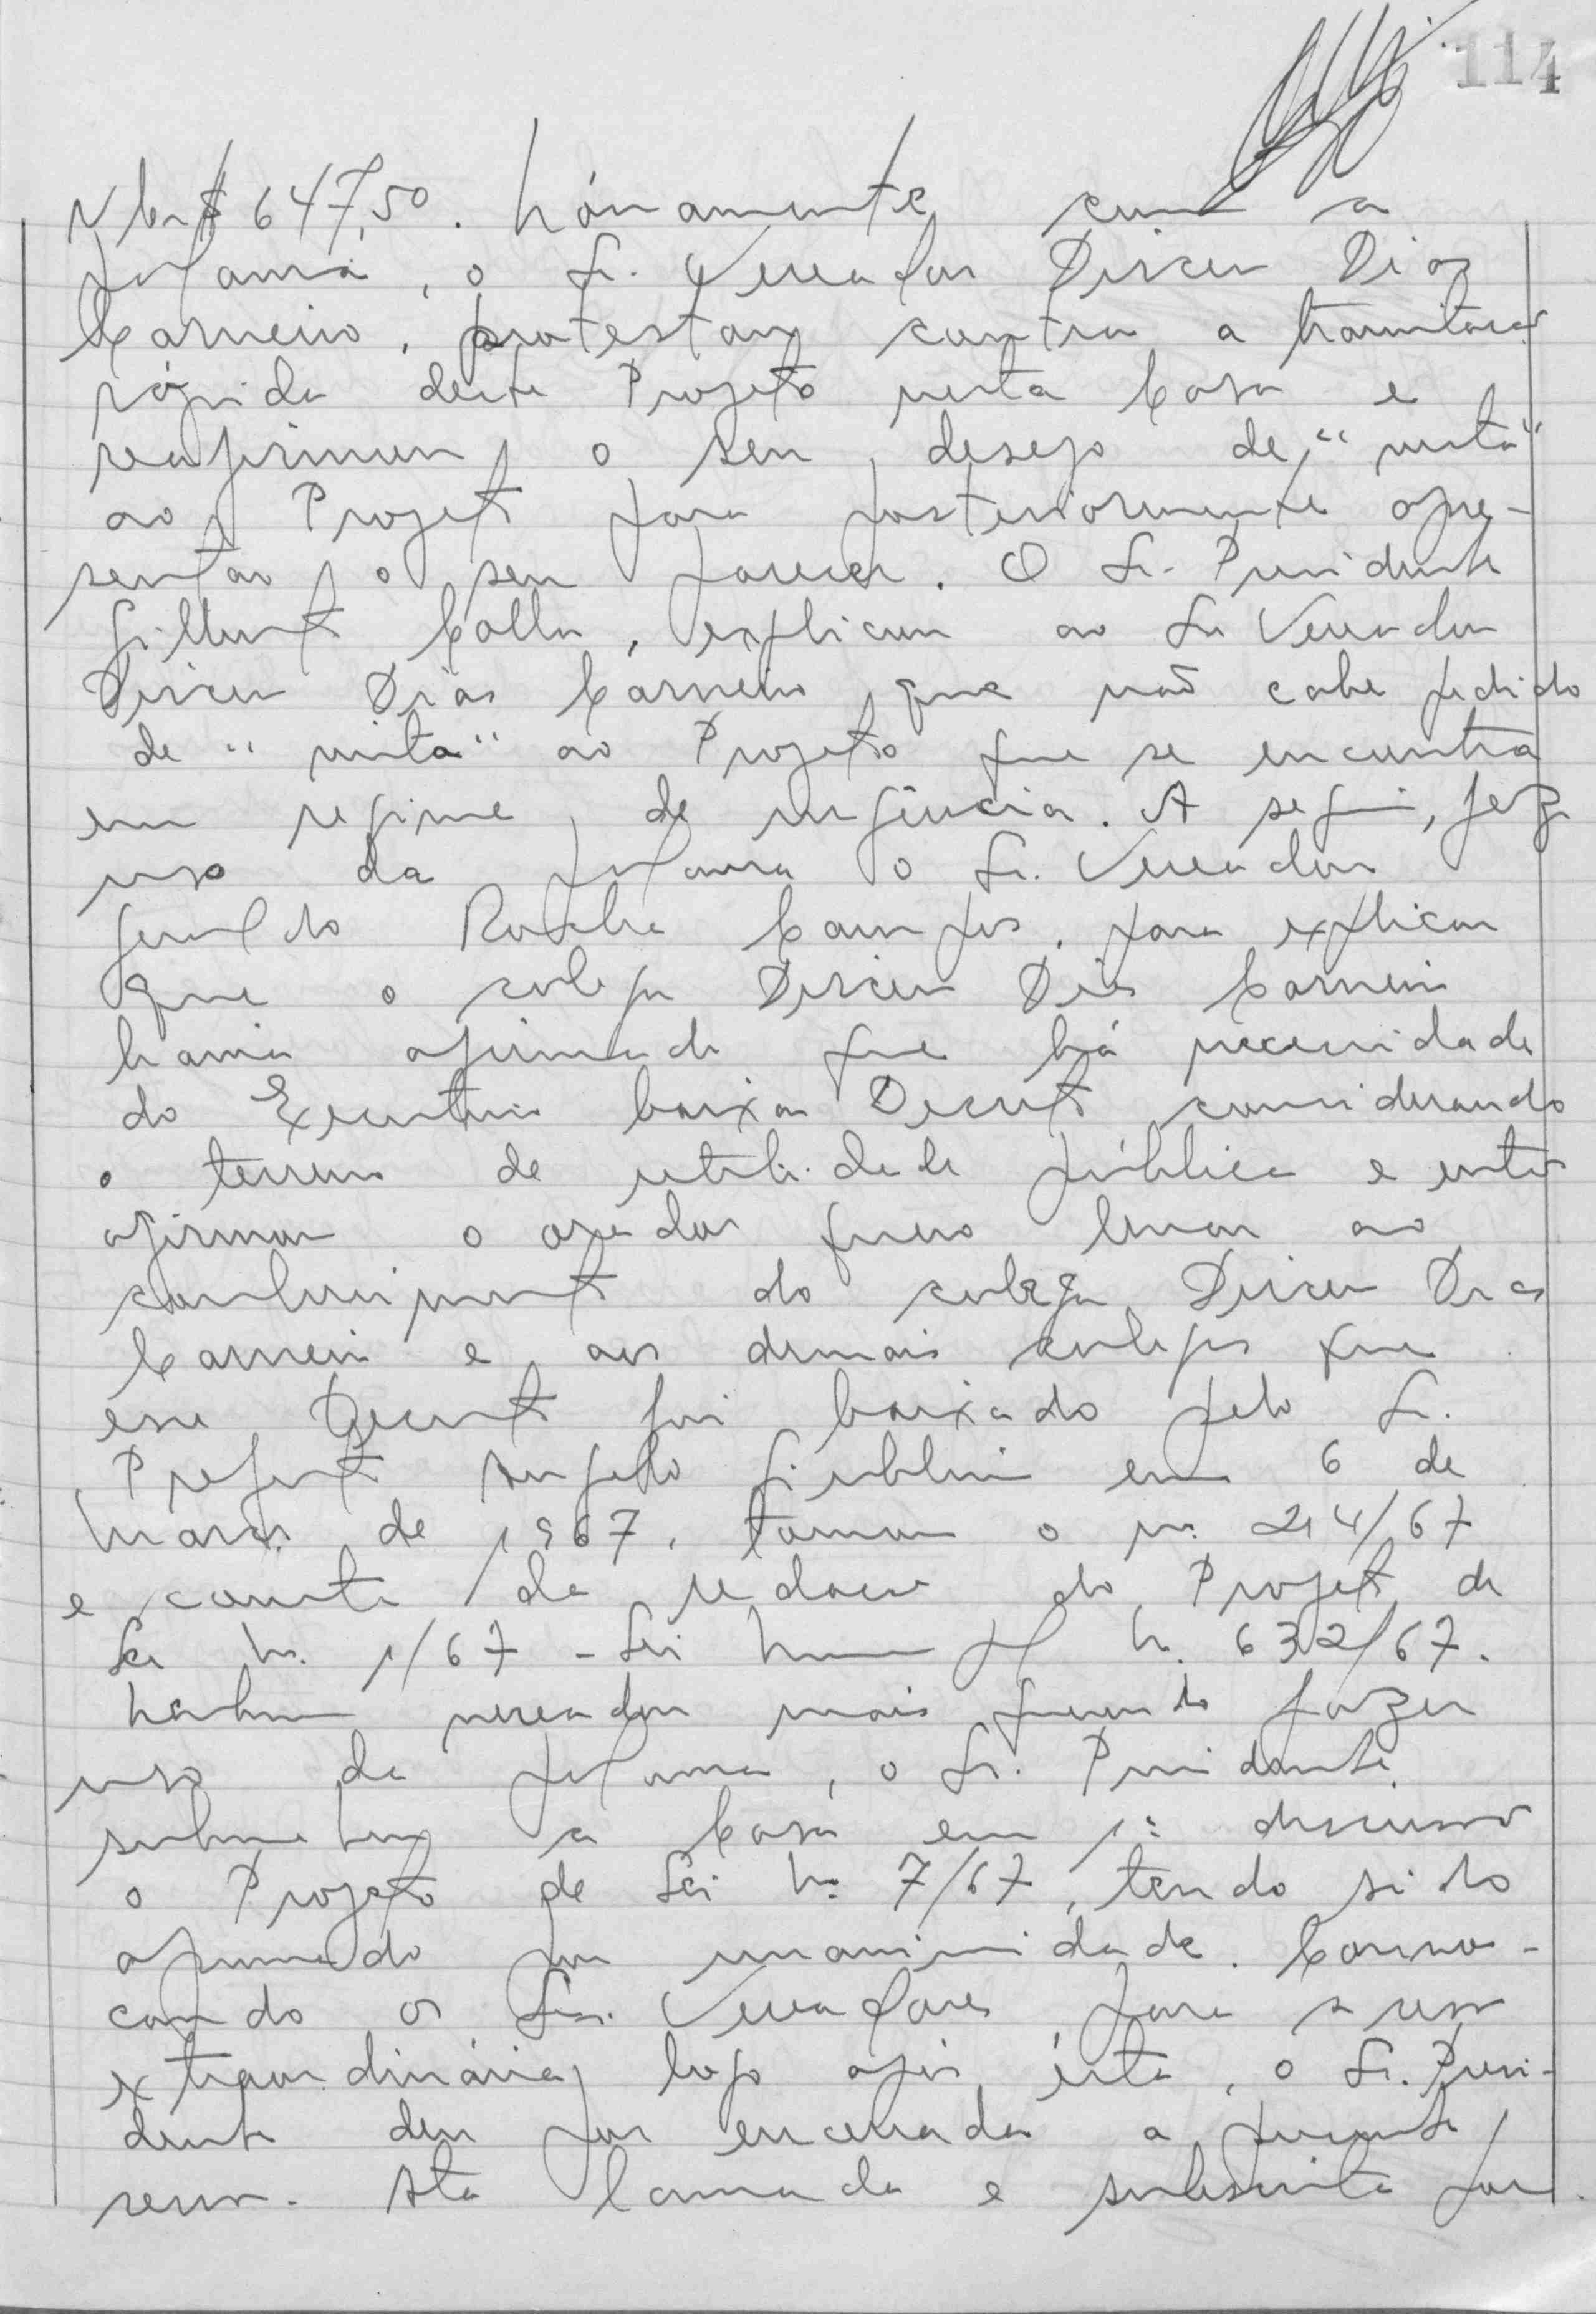 114
NCr$ 647,50. Novamente com a
palavra, o Sr. Vereador Dirceu Dias
Carneiro, protestou contra a tramitação
rápida deste Projeto nesta Casa e
reafirmou o seu desejo de "vista"
ao Projeto para posteriormente apre-
sentar o seu parecer. O Sr. Presidente
Gilberto Calla, explicou ao Sr Vereador
Dirceu Dias Carneiro que não cabe pedido
de "vista" ao Projeto que se encontra
em regime de urgência. A seguir, fez
uso da palavra o Sr. Vereador
Geraldo Rocha Campos, para explicar
que o colega Dirceu Dias Carneiro
havia afirmado que há necessidade
do Executivo baixar Decreto considerando
o terreno de utilidade pública e então
afirmou o orador quero levar ao
conhecimento do colega Dirceu Dias
Carneiro e aos demais colegas que
esse Decreto foi baixado pelo Sr.
Prefeito Angelo Giublin em 6 de
Março de 1967, tomou o nº 214/67
e consta da redação do Projeto de
Lei Nº 1/67 - Lei Municipal Nº 632/67.
Nenhum vereador mais querendo fazer
uso da palavra, o Sr. Presidente
submeteu a Casa em 1ª discussão
o Projeto de Lei Nº 7/67, tendo sido
aprovado por unanimidade. Convo-
cando os Srs. Vereadores para sessão
extraordinária logo após ésta, o Sr. Presi-
dente deu por encerrada a presente
sessão. Ata lavrada e subscrita por